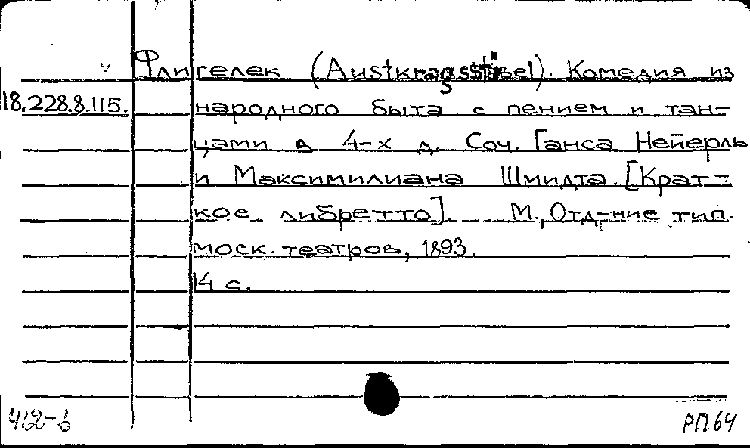 Флигелек (Austragsstübel). Комедия из
18.228.8.115. народного быта с пением и тан-
цами в 4-х д. Соч. Ганса Нейерль
и Максимилиана Шмидта. [Крат-
кое либретто]. М., Отд-ние тип.
моск. театров, 1893.
14 с.
РП64